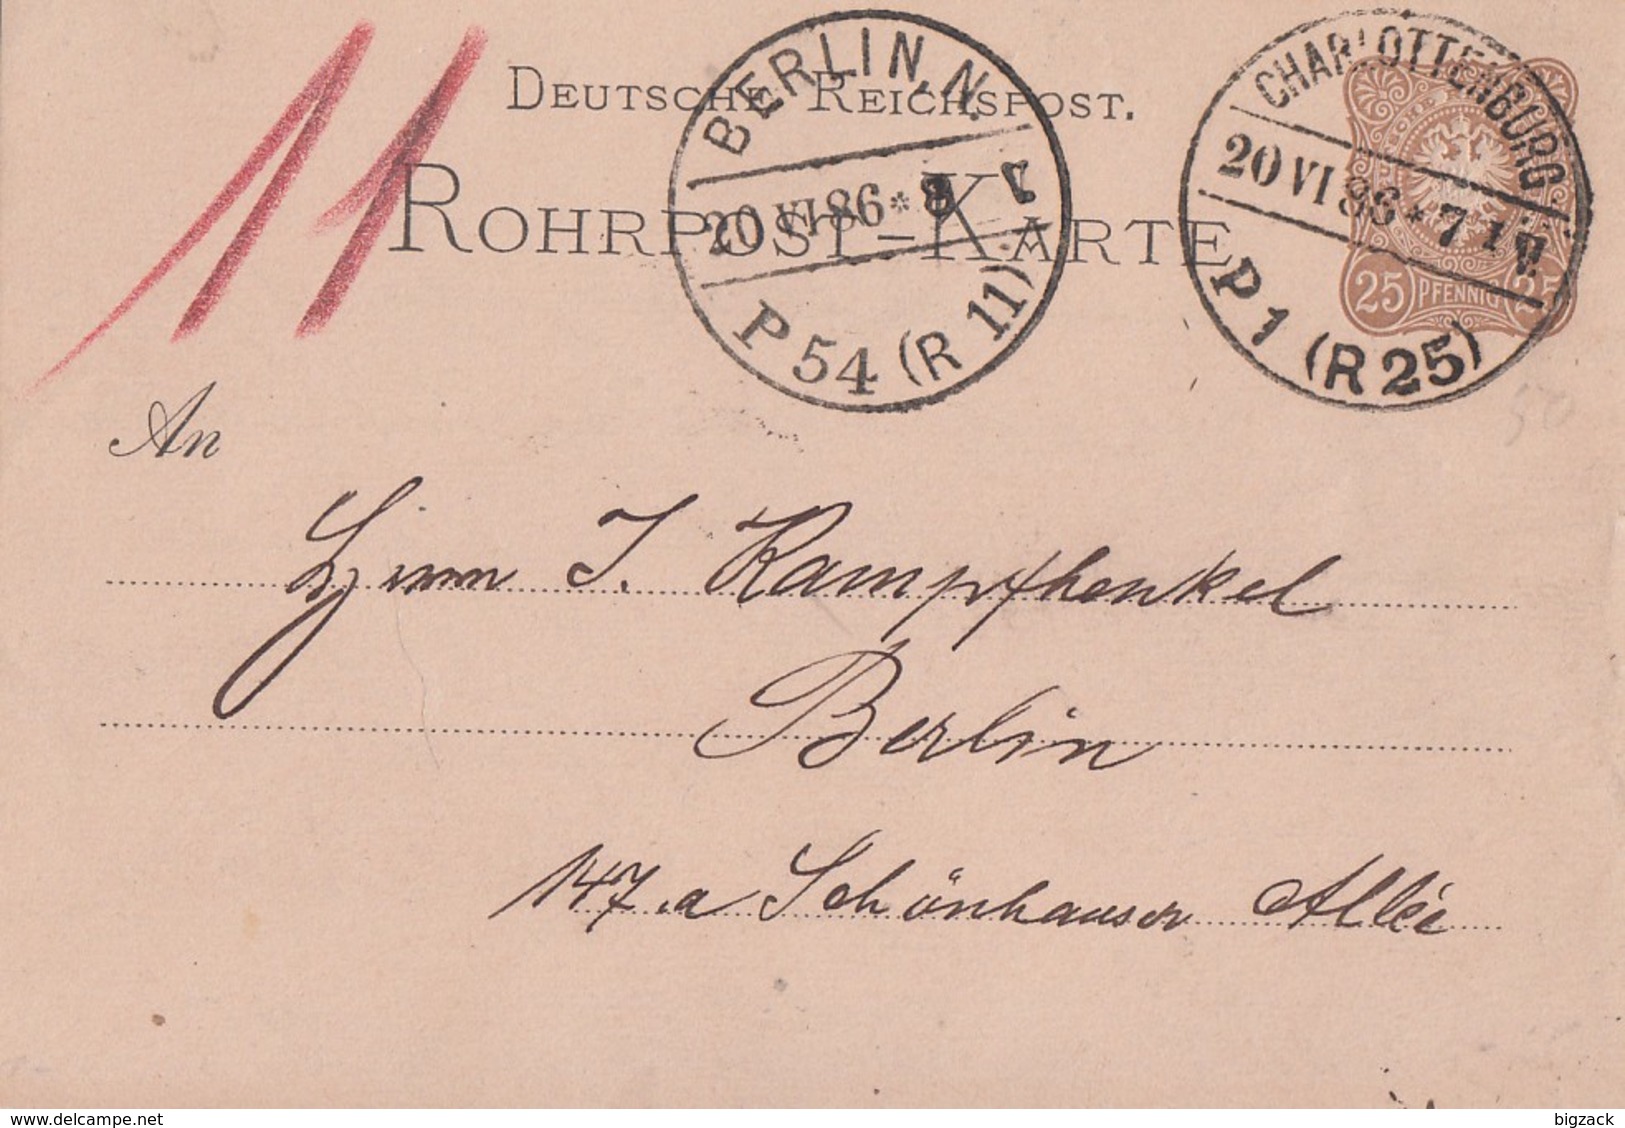 11
DEUTSCHE REICHSPOST.
ROHRPOST-KARTE.
BERLIN, N.
20 VI 86 * 8
P 54 (R 11)
CHARLOTTENBURG
20 VI 86 * 7
P 1 (R 25)
25 PFENNIG 25
50
An
Herrn J. Kampfhenkel
Berlin
147.a Schönhauser Allée
delcampe.net
bigzack